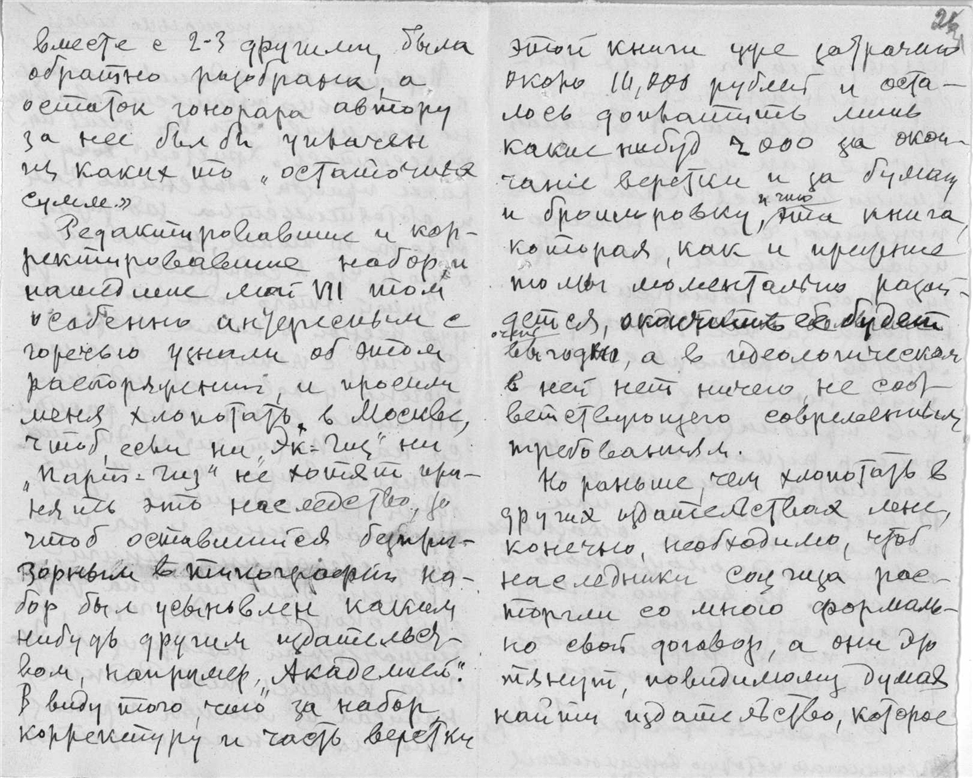 вместе с 2-3 другими, была
обратно разобрана, а
остаток гонорара автору
за нее был бы уплачен
из каких то „остаточных
сумм.»
Редактировавшие и кор-
ректировавшие набор и
нашедшие мой VII том
особенно интересным с
горечью узнали об этом
распоряжении, и просили
меня хлопотать, в Москве,
чтоб, если ни „Эк-гиз" ни
„Парт-гиз" не хотят при-
нять это наследство, то
чтоб оставшийся безпри-
зорным в типографии на-
бор был усыновлен каким
нибудь другим издательст-
вом например, „Академией".
В виду того что за набор
корректуру и часть верстки
24
этой книги уже затрачено
около 10,000 рублей и оста-
лось доплатить лишь
какие нибуд 2000 за окон-
чание верстки и за бумагу
и брошюровку, и что эта книга,
которая, как и прежние
томы моментально разой-
дется, окончить ее будет
очень
выгодно, а в идеологическом
в ней нет ничего, не соот-
ветствующего современным
требованиям.
Но раньше, чем хлопотать в
других издательствах мне,
конечно, необходимо, чтоб
наследники Соцгиза рас-
торгли со мною формаль-
но свой договор, а они это
тянут, повидимому думая
найти издательство, которое